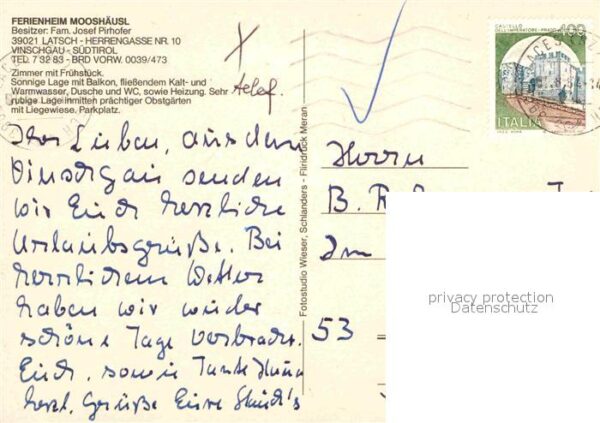 FERIENHEIM MOOSHÄUSL
Besitzer: Fam. Josef Pirhofer
39021 LATSCH - HERRENGASSE NR. 10
VINSCHGAU - SÜDTIROL
TEL. 7 32 83 - BRD VORW. 0039/473
Zimmer mit Frühstück.
Sonnige Lage mit Balkon, fließendem Kalt- und
Warmwasser, Dusche und WC, sowie Heizung. Sehr
ruhige Lage inmitten prächtiger Obstgärten
mit Liegewiese. Parkplatz.
telef.
Ihr Lieben, aus dem
Vinschgau senden
wir Euch herzliche
Urlaubsgrüße. Bei
herrlichem Wetter
haben wir wieder
schöne Tage verbracht.
Euch, sowie Tante
herzl. Grüße Eure
Fotostudio Wieser, Schlanders - Fliridruck Meran
CASTELLO
DELL'IMPERATORE - PRATO
400
ITALIA
Herrn
B.
Im
53
privacy protection
Datenschutz